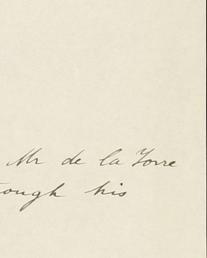 Mr de la Torre
ough his